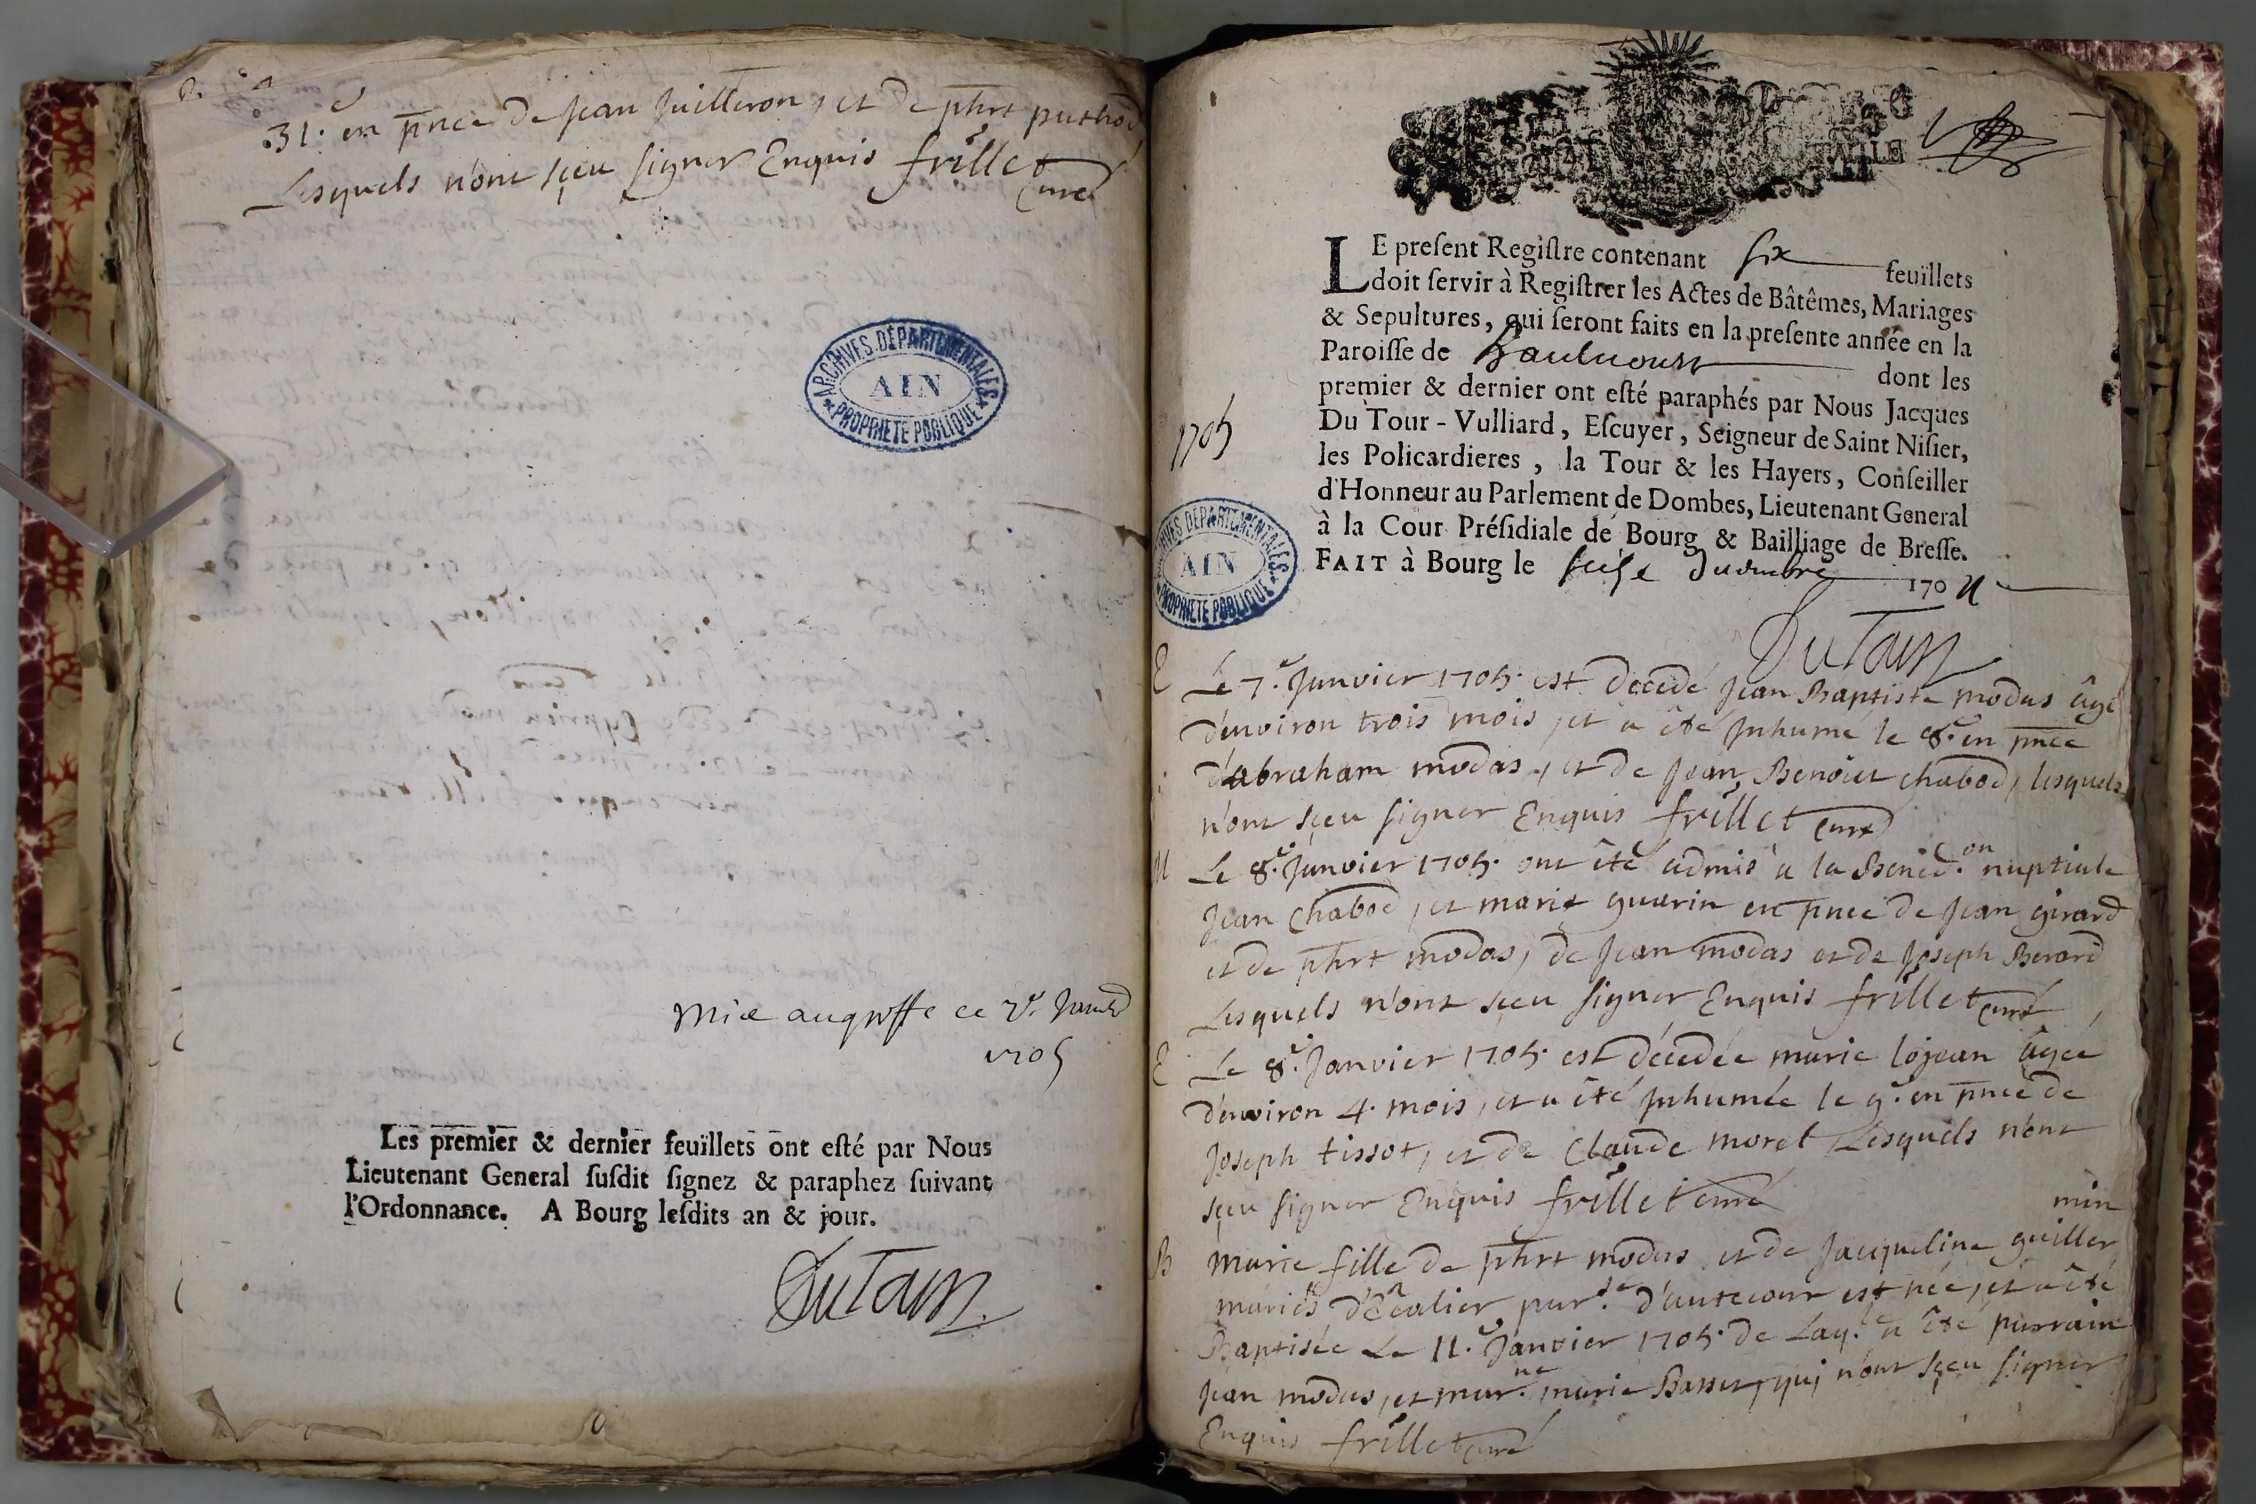 31. en pnce de Jean Juilleron, et de phrt puthod
Lesquels n'ont sçeu signer Enquis frillet
curé
ARCHIVES DÉPARTEMENTALES
AIN
PROPRIÉTÉ PUBLIQUE
Mis au greffe ce
1705
Les premier & dernier feüillets ont esté par Nous
Lieutenant General susdit signez & paraphez suivant
l'Ordonnance. A Bourg lesdits an & jour.
DuTour
LE present Registre contenant six feuillets
doit servir à Registrer les Actes de Bâtêmes, Mariages
& Sepultures, qui seront faits en la presente année en la
Paroisse de dont les
premier & dernier ont esté paraphés par Nous Jacques
Du Tour - Vulliard, Escuyer, Seigneur de Saint Nisier,
les Policardieres, la Tour & les Hayers, Conseiller
d'Honneur au Parlement de Dombes, Lieutenant General
à la Cour Présidiale de Bourg & Bailliage de Bresse.
FAIT à Bourg le seize 1704
DuTour
1705
ARCHIVES DÉPARTEMENTALES
AIN
PROPRIÉTÉ PUBLIQUE
E Le 7.e Janvier 1705. est decedé Jean Baptiste modas âgé
d'environ trois mois, et a été Inhumé le 8.e en pnce
d'abraham modas, et de Jean Benoict chabod, lesquels
n'ont sçeu signer Enquis frillet curé
M Le 8.e Janvier 1705. ont été admis a la Bened.on nuptiale
Jean chabod, et marie guerin en pnce de Jean girard
et de phrt modas, de Jean modas et de Joseph Berard
Lesquels n'ont sçeu signer Enquis frillet curé
E Le 8.e Janvier 1705. est décedée marie lojean âgée
d'environ 4. mois, et a été Inhumée le 9. en pnce de
Joseph tissot, et de Claude morel Lesquels n'ont
sçeu signer Enquis frillet curé
min
B Marie fille de phrt modas et de Jacqueline guiller
mariés d'Ecalier par.se d'autecour est née, et a été
Baptisée Le 11.e Janvier 1705. de Laq.e a été parrain
Jean modas, et mar.ne marie Basset, qui n'ont sçeu signer
Enquis frillet curé